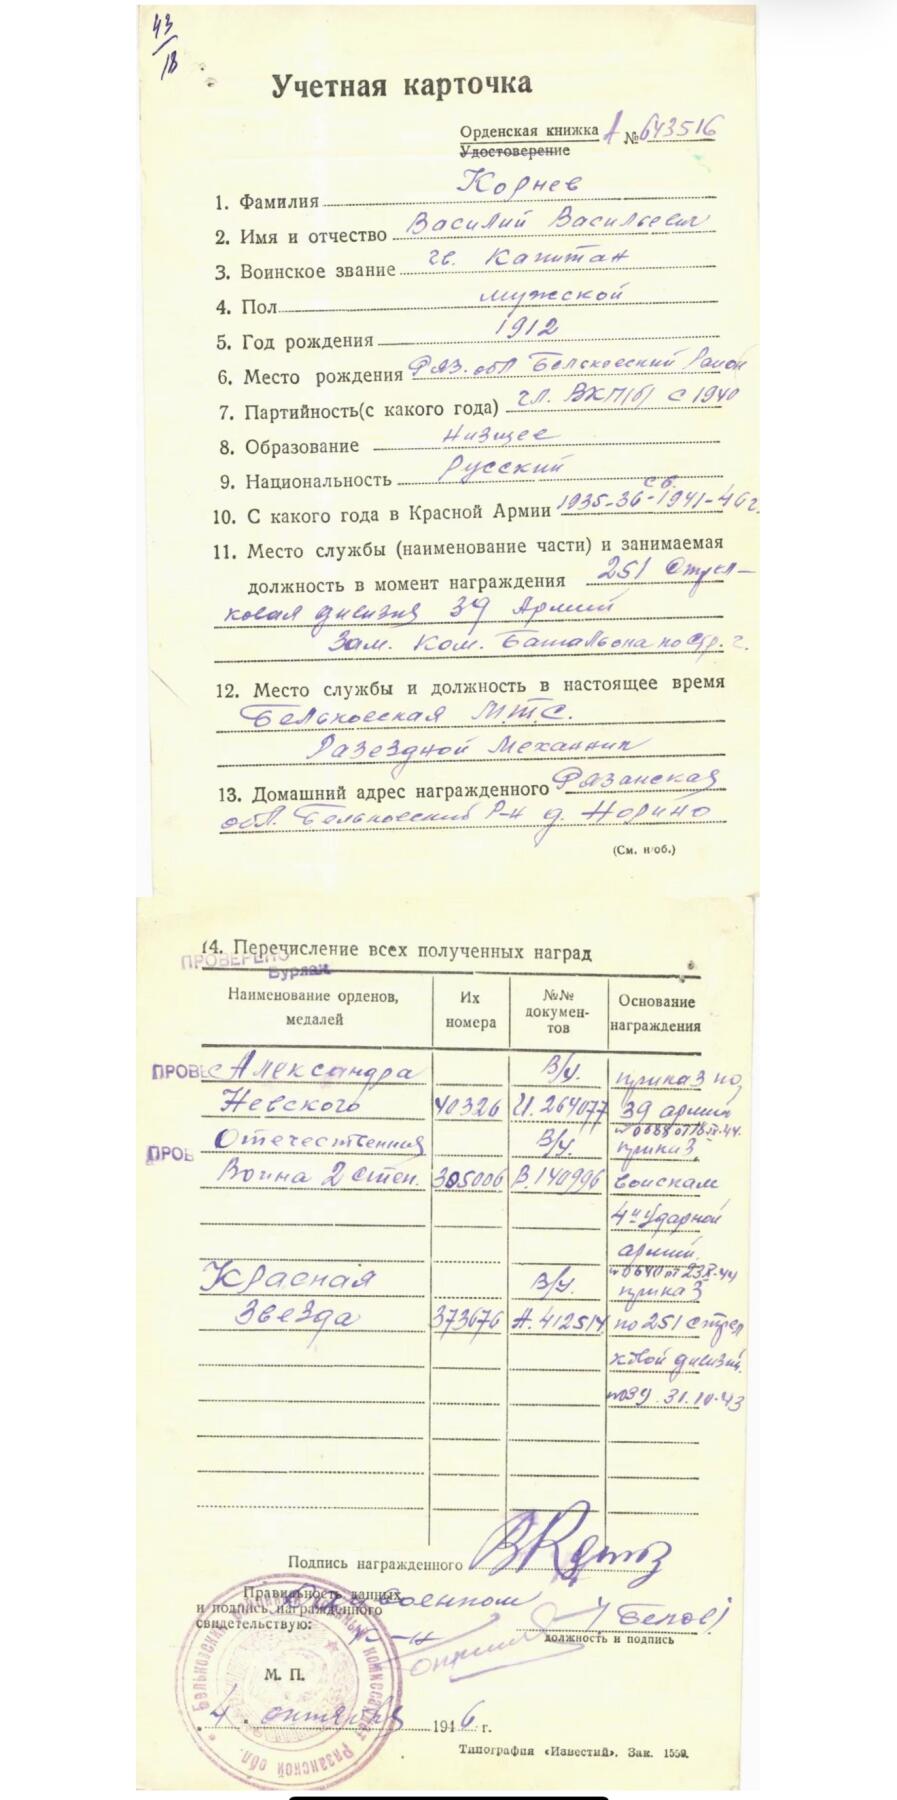 43/18
Учетная карточка
Орденская книжка А № 643516
Удостоверение
1. Фамилия Корнев
2. Имя и отчество Василий Васильевич
3. Воинское звание гв. Капитан
4. Пол мужской
5. Год рождения 1912
6. Место рождения Ряз. обл Бельковский Район
7. Партийность(с какого года) чл. ВКП(б) с 1940
8. Образование Низшее
9. Национальность Русский
св.
10. С какого года в Красной Армии 1935-36 - 1941-46 г.
11. Место службы (наименование части) и занимаемая
должность в момент награждения 251 Стрел-
ковая дивизия 39 Армии
Зам. Ком. Батальона по стр. ч.
12. Место службы и должность в настоящее время
Бельковская М.Т.С.
Разездной Механник
13. Домашний адрес награжденного Рязанская
обл. Бельковский Р-н д. Норино
(См. н/об.)
14. Перечисление всех полученных наград
ПРОВЕРЕНО
Бурлак
Наименование орденов, медалей
Их номера
№№ документов
Основание награждения
ПРОВЕ Александра В/у. приказ по
Невского 40326 И.264077 39 армии
№0688 от 18
ПРОВ Отечественная В/у. приказ
Воина 2 степ. 305006 В.140996 воискам
4й Ударной
армии.
№0640 от 23.X-44
Красная В/у. приказ
Звезда 373676 А.412514 по 251 стрел
ковой дивизии.
№39. 31.10-43
Подпись награжденного
Правильность данных
и подпись награжденного
свидетельствую:
военком /Белов/
должность и подпись
М. П.
4 октября 1946 г.
Бельковский районный военный комиссариат Рязанской обл.
Типография «Известий». Зак. 1559.